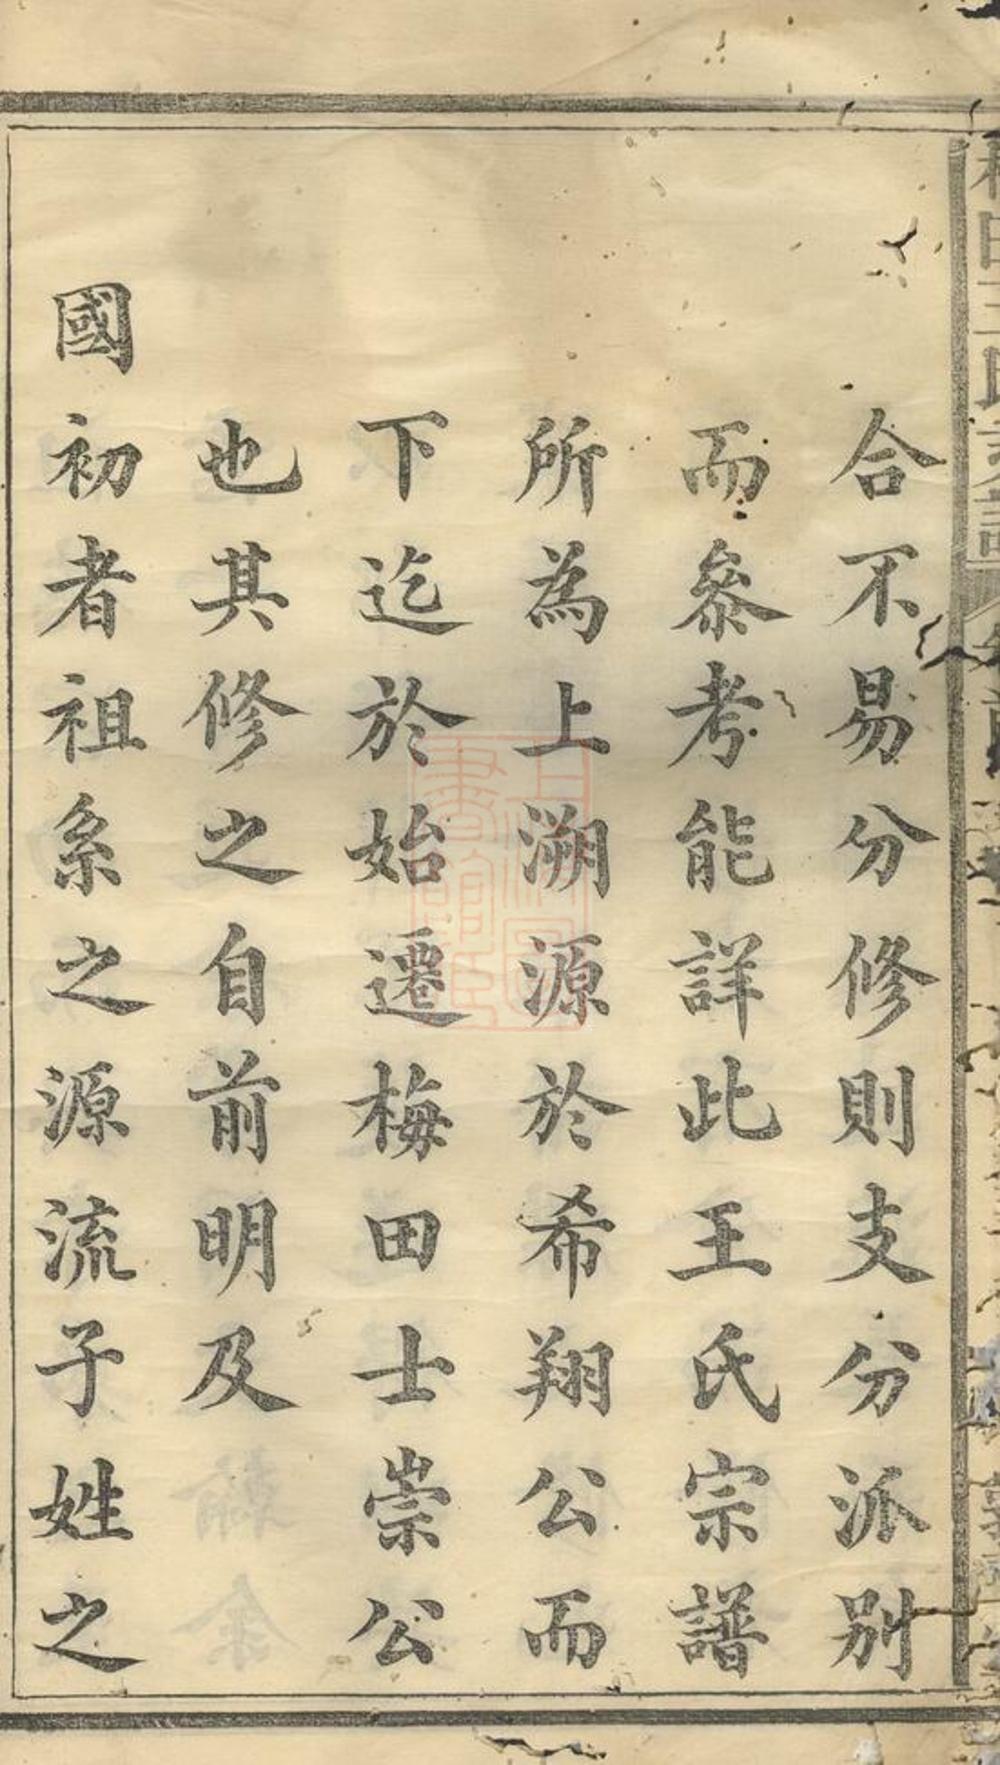 合不易分修則支分派別
而叅考能詳此王氏宗譜
所為上溯源於希翔公而
下迄於始遷梅田士崇公
也其修之自前明及
國初者祖系之源流子姓之